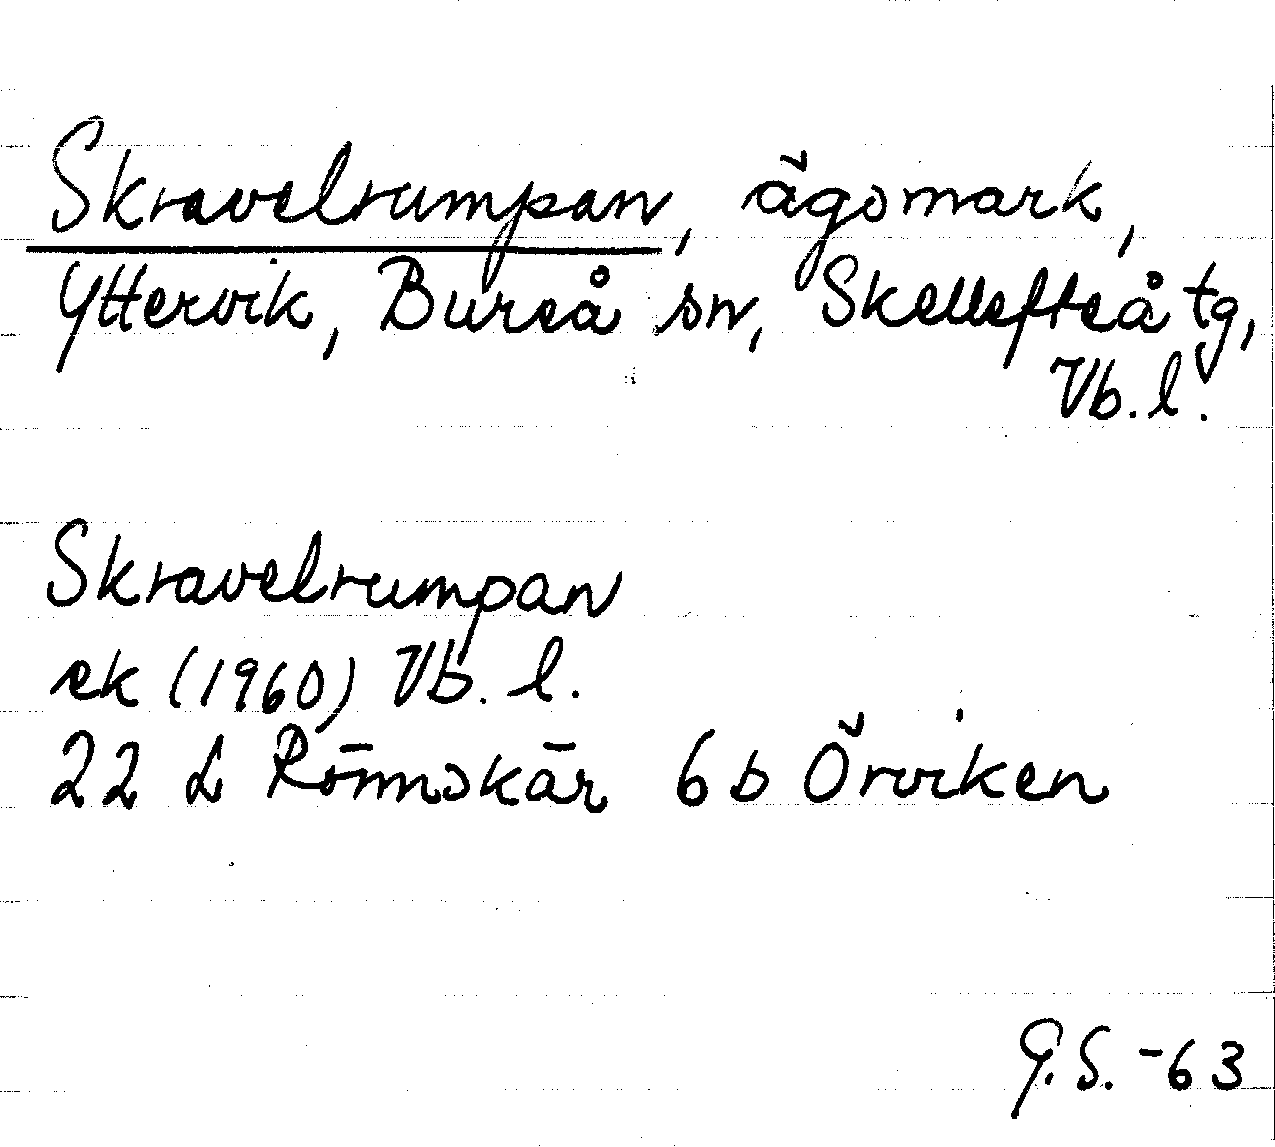 Skravelrumpan, ägomark,
Yttervik, Bureå sn, Skellefteå tg,
Vb. l.
Skravelrumpan
ek (1960) Vb. l.
22 L Rönnskär 6b Örviken
G.S. -63